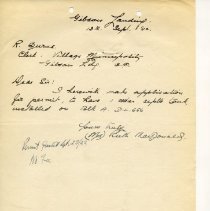 Gibsons Landing
B.C. Sept. 1/50
R. Burns
Clerk: Village Municipality
Gibsons Ldg. B.C.
Dear Sir:
I herewith make application
for permit, to have a new septic tank
installed on Blk
Yours truly
(Mrs) Ruth MacDonald
Permit Granted Sept
No Fee